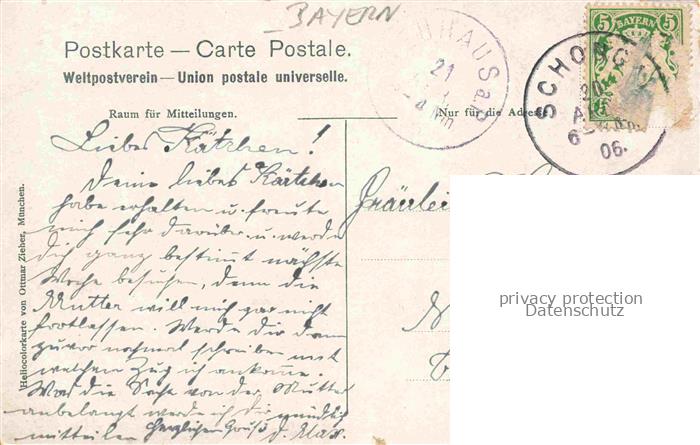 BAYERN
Postkarte — Carte Postale.
Weltpostverein — Union postale universelle.
Raum für Mitteilungen.
Nur für die Adresse
HAUS a.
21
SCHONG
20
6
06.
5 BAYERN 5
Liebes Kätchen!
Deine liebes Kärtchen
habe erhalten u. freute
mich sehr darüber u. werde
dich ganz bestimmt nächste
Woche besuchen, denn die
Mutter will mich gar nicht
fortlassen. Werde dir dann
zuvor nochmal schreiben mit
welchem Zug ich ankomme.
Was die Sache von der Mutter
anbelangt werde ich dir mündlich
mitteilen Herzlichen Gruß d. Max.
Fräulei
Heliocolorkarte von Ottmar Zieher, München.
privacy protection
Datenschutz